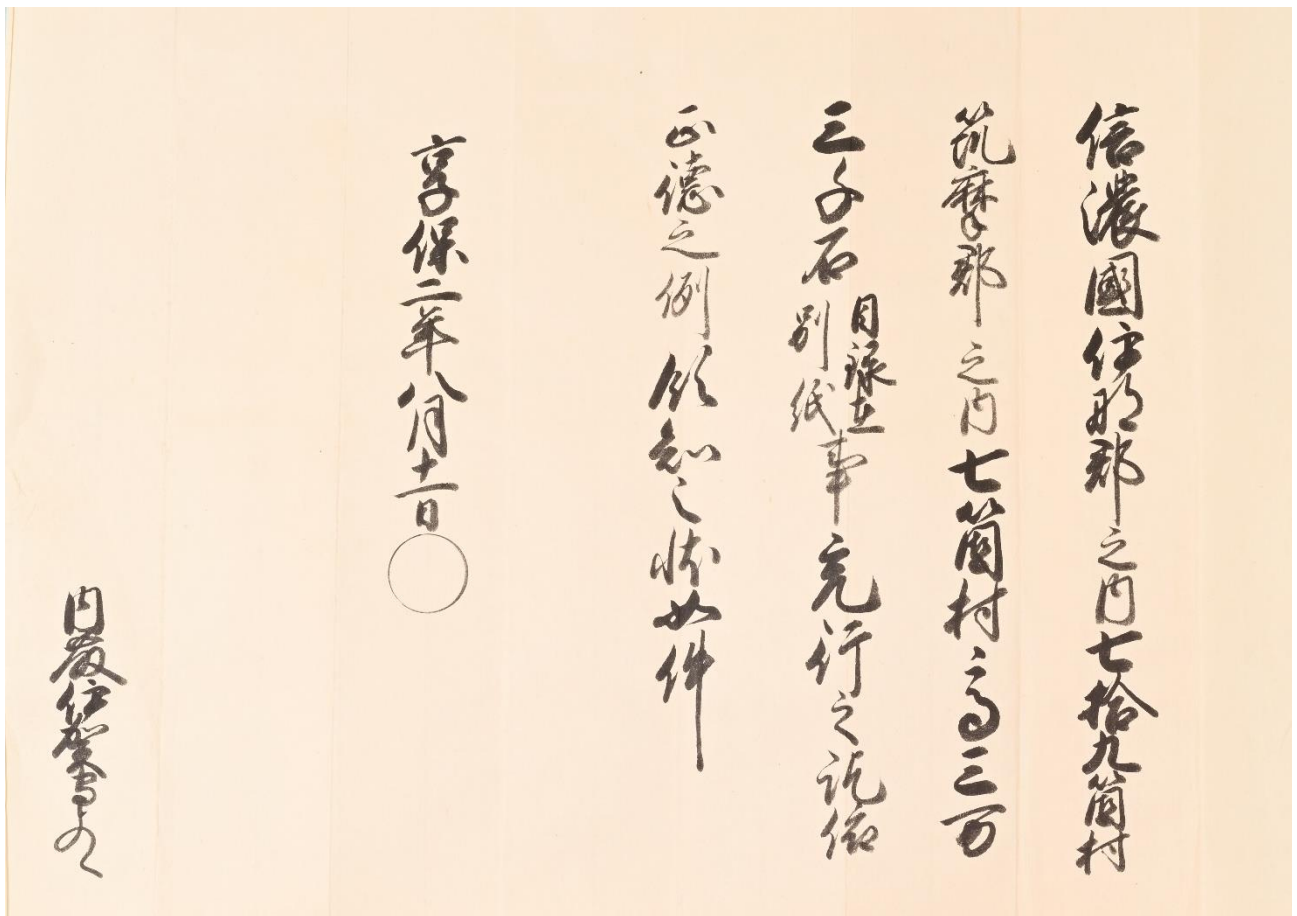 信濃國伊那郡之内七拾九箇村
筑摩郡之内七箇村高三万
三千石目録在別紙事充行之訖依
正徳之例領知之状如件
享保二年八月十一日
内藤伊賀守とのへ